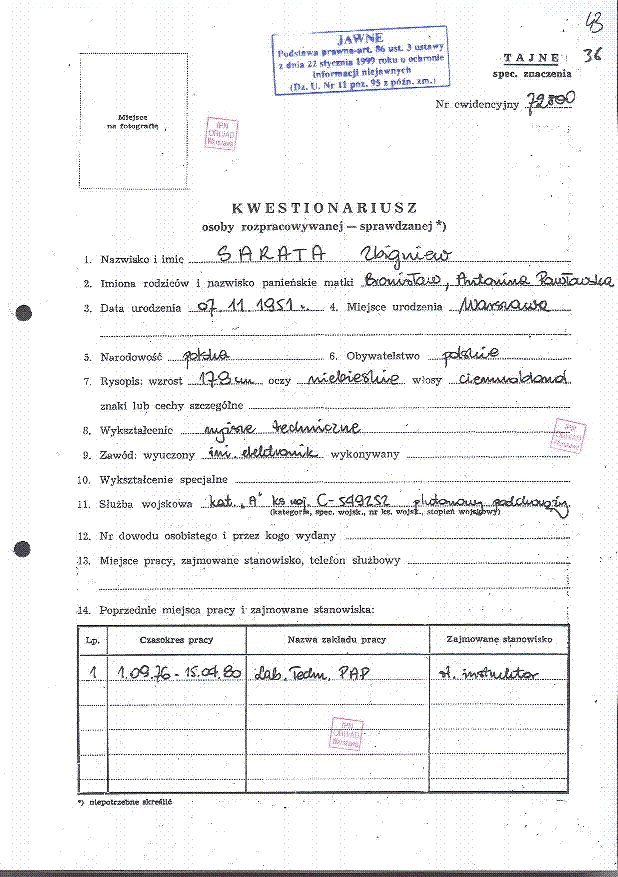 43
JAWNE
Podstawa prawna-art. 86 ust. 3 ustawy
z dnia 22 stycznia 1999 roku o ochronie
informacji niejawnych
(Dz. U. Nr 11 poz. 95 z późn. zm.)
TAJNE 36
spec. znaczenia
Nr ewidencyjny 72800
Miejsce
na fotografię
IPN
Warszawa
KWESTIONARIUSZ
osoby rozpracowywanej — sprawdzanej *)
1. Nazwisko i imię SARATA Zbigniew
2. Imiona rodziców i nazwisko panieńskie matki Bronisław, Antonina Pawłowska
3. Data urodzenia 07.11.1951 r. 4. Miejsce urodzenia Warszawa
5. Narodowość polska 6. Obywatelstwo polskie
7. Rysopis: wzrost 178 cm oczy niebieskie włosy ciemnoblond
znaki lub cechy szczególne
8. Wykształcenie wyższe techniczne
IPN
Warszawa
9. Zawód: wyuczony inż. elektronik wykonywany
10. Wykształcenie specjalne
11. Służba wojskowa kat. „A" ks woj. C-549252 plutonowy podchorąży
(kategoria, spec. wojsk., nr ks. wojsk., stopień wojskowy)
12. Nr dowodu osobistego i przez kogo wydany
13. Miejsce pracy, zajmowane stanowisko, telefon służbowy
14. Poprzednie miejsca pracy i zajmowane stanowiska:
Lp. Czasokres pracy Nazwa zakładu pracy Zajmowane stanowisko
1 1.09.76 - 15.04.80 Lab. Techn. PAP st. instruktor
IPN
Warszawa
*) niepotrzebne skreślić